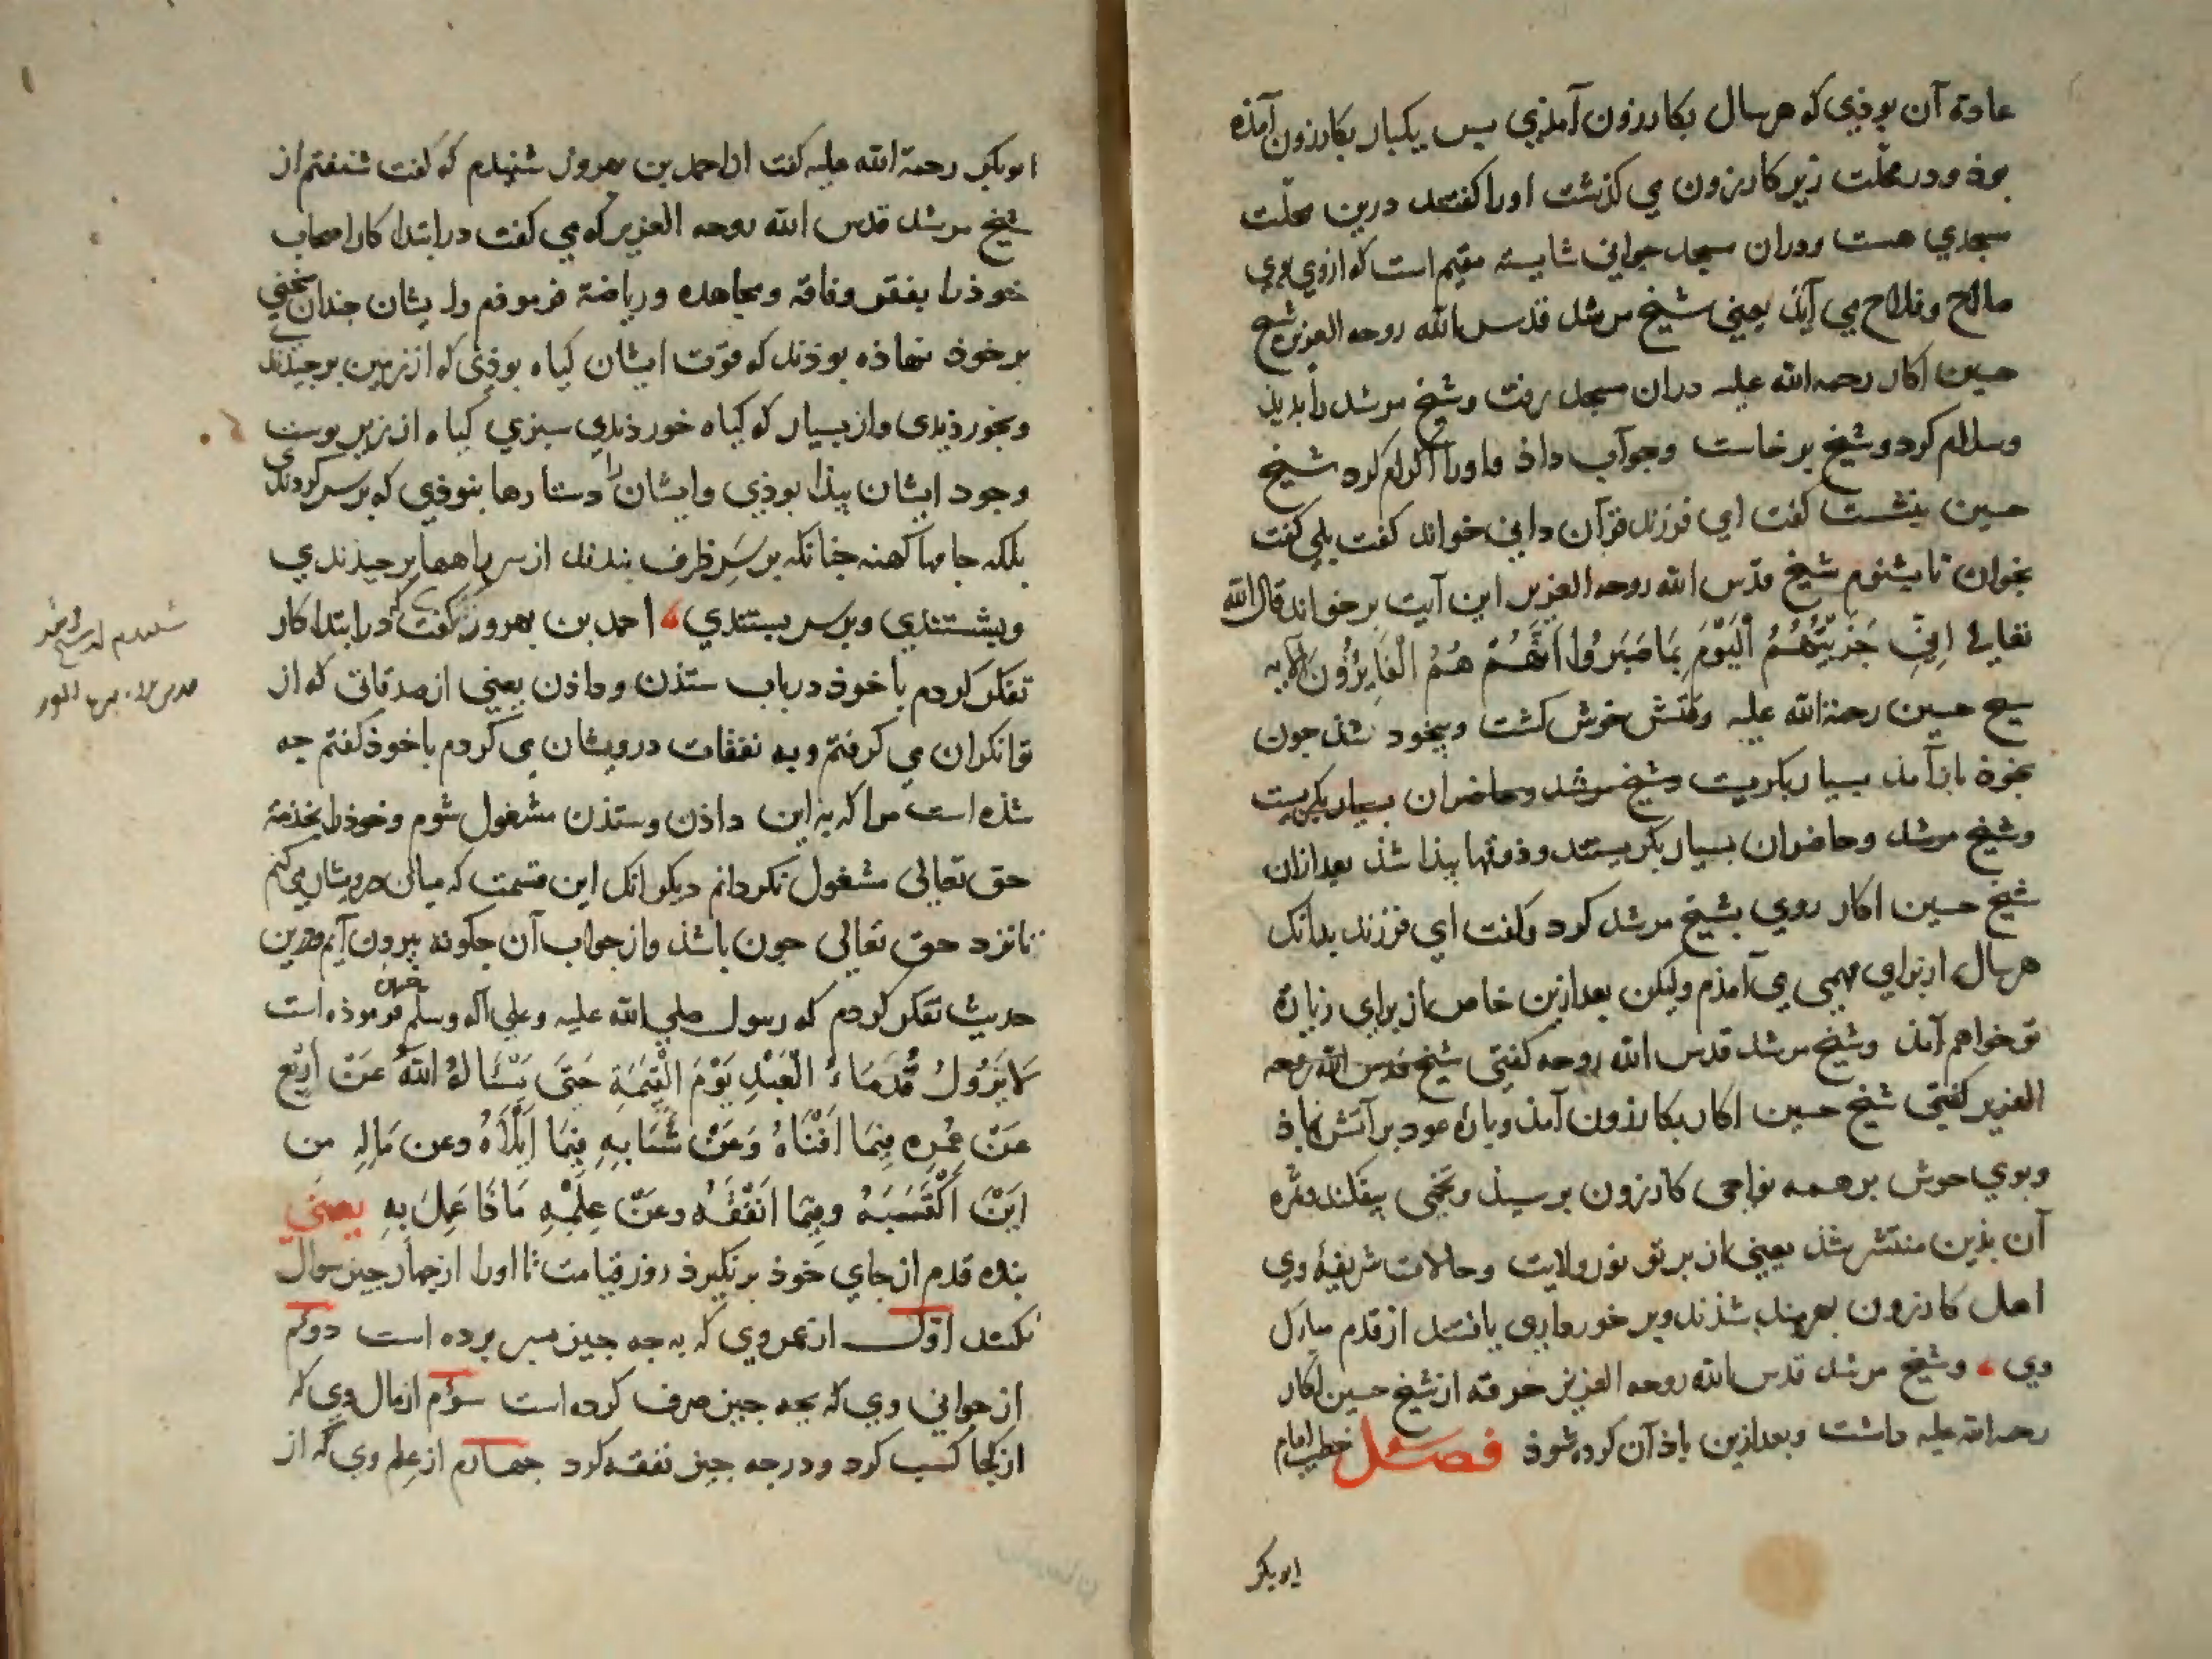 عادة آن بوذی که هر سال بکازرون آمذی پس یکبار بکازرون آمذه
بوذ و در محلّت زیر کازرون می کذشت اورا کفتند درین محلّت
مسجدی هست و دران مسجد جوانی شایسته مقیم است که ازوی بوی
صلاح و فلاح می آیذ یعنی شیخ مرشد قدس الله روحه العزیز شیخ
حسین اکار رحمه الله علیه دران مسجد رفت و شیخ مرشد را بدیذ
وسلام کرد و شیخ برخاست وجواب داذ و اورا اکرام کرد شیخ
حسین بنشست کفت ای فرزند قرآن دانی خواند کفت بلی کفت
بخوان تا بشنوم شیخ قدس الله روحه العزیز این آیت برخواند قال الله
تعالی اِنِّی جَزَیْتُهُمُ الْیَوْمَ بِمَا صَبَرُوا اَنَّهُمْ هُمُ الْفَایِزُونَ الآیه
شیخ حسین رحمة الله علیه وقتش خوش کشت و بیخود شذ جون
بخوذ باز آمذ بسیار بکریست و شیخ مرشد و حاضران بسیار بکریست
و شیخ مرشد و حاضران بسیار بکریستند و ذوقها پیذا شذ بعد ازان
شیخ حسین اکار روی بشیخ مرشد کرد و کفت ای فرزند بدانک
هر سال از برای مهمی می آمذم ولیکن بعد ازین خاص از برای زیارة
تو خواهم آمذ و شیخ مرشد قدس الله روحه کفتی شیخ قدس الله روحه
العزیز کفتی شیخ حسین اکار بکازرون آمذ و پارۀ عود بر آتش نهاذ
و بوی خوش بر همه نواحی کازرون برسیذ و تخمی بیفکند و ثمره
آن بذین منتشر شذ یعنی از برتو نور ولایت و حالات شریفۀ وی
اهل کازرون بهرمند شذند و برخورداری یافتند از قدم مبارک
وی ، و شیخ مرشد قدس الله روحه العزیز خرقه از شیخ حسین اکار
رحمه الله علیه داشت و بعد ازین یاذ آن کرده شوذ فصل خطیب امام
ابوبکر
ابوبکر رحمة الله علیه کفت از احمد بن بهروز شنیذم که کفت شنفتم از
شیخ مرشد قدس الله روحه العزیز که می کفت در ابتدا کار اصحاب
خوذ را بفقر وفاقه و مجاهده و ریاضة فرموذم و ایشان جندان سختی
بر خوذ نهاذه بوذند که قوّت ایشان کیاه بوذی که از زمین برجیذندی
وبخورذندی و از بسیار که کیاه خورذندی سبزی کیاه از زیر پوست
وجود ایشان پیذا بوذی و ایشان را دستارها نبوذی که بر سر کردندی
بلکه جامها کهنه جنانکه بر سَرِ ظرف بندند از سر راهها برجیذندی
وبشستندی وبر سر بستندی ، احمد بن بهروز کفت که در ابتدا کار
تفکر کردم با خوذ در باب ستذن و داذن یعنی از صدقاتی که از
توانکران می کرفتم و به نفقات درویشان می کردم با خوذ کفتم جه
شذه است مرا که به این داذن و ستذن مشغول شوم و خوذ را بخذمة
حق تعالی مشغول نکردانم دیکر انک این قسمت که میان درویشان می کنم
تا نزد حق تعالی جون باشذ و از جواب آن جکونه بیرون آیم و درین
حدیث تفکر کردم که رسول صلی الله علیه وعلی آله وسلم فرموذه است
لَا یَزُولُ قَدَمَاءُ الْعَبْدِ یَوْمَ الْقِیٰمَةِ حَتَّی یَسْئَالَهُ اللهُ عَنْ اَرْبَعٍ
عَنْ عُمْرِهِ فِیْمَا اَفْنَاهُ وَعَنْ شَبَابِهِ فِیْمَا اَبْلَاهُ وعن مَالِهِ من
اَیْنَ اکْتَسَبَهُ وفِیْمَا اَنْفَقَهُ وعَنْ عِلْمِهِ مَاذَا عَمِلَ بِهِ یعنی
بنده قدم از جای خوذ برنکیرذ روز قیامت تا اورا از جهار جیز سوال
نکنند اوّل از عمر وی که به جه جیز بسر برده است دوم
از جوانی وی که بجه جیز صرف کرده است سوم از مال وی که
از کجا کسب کرد و در جه جیز نفقه کرد جهارم از علم وی که از